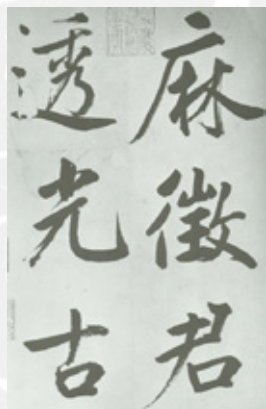 麻徵君
透光古